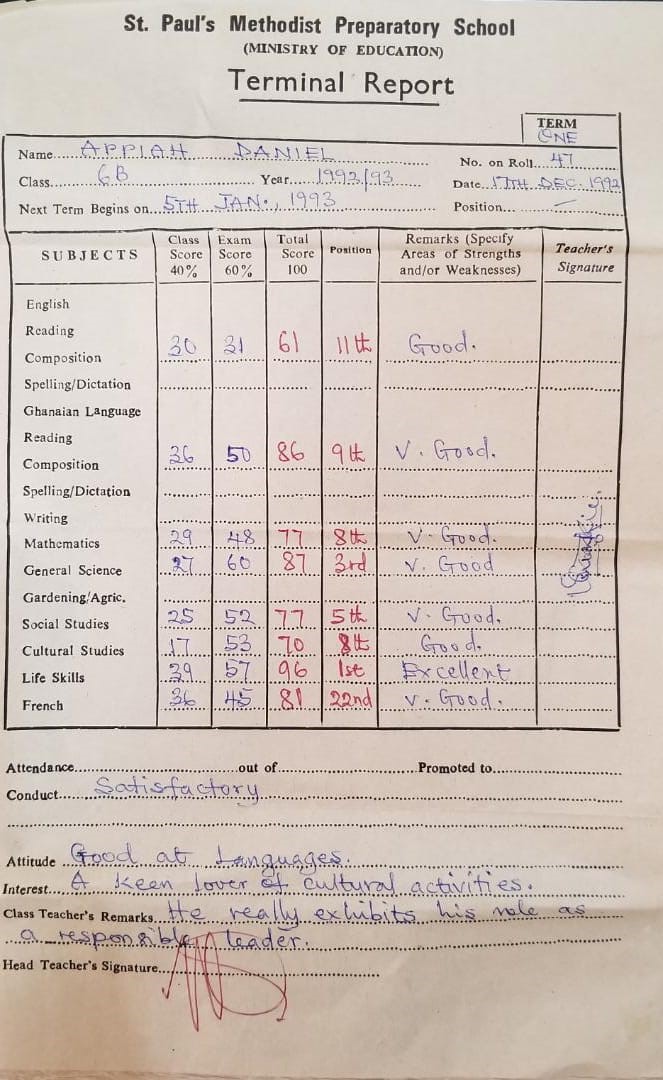 St. Paul's Methodist Preparatory School
(MINISTRY OF EDUCATION)
Terminal Report
TERM
ONE
Name APPIAH DANIEL
No. on Roll 47
Class 6B Year 1992/93
Date 17TH DEC. 1992
Next Term Begins on 5TH JAN., 1993
Position –
SUBJECTS Class Score 40% Exam Score 60% Total Score 100 Position Remarks (Specify Areas of Strengths and/or Weaknesses) Teacher's Signature
English
Reading
Composition 30 31 61 11th Good.
Spelling/Dictation
Ghanaian Language
Reading
Composition 36 50 86 9th V. Good.
Spelling/Dictation
Writing
Mathematics 29 48 77 8th V. Good.
General Science 27 60 87 3rd V. Good
Gardening/Agric.
Social Studies 25 52 77 5th V. Good.
Cultural Studies 17 53 70 8th Good.
Life Skills 39 57 96 1st Excellent
French 36 45 81 22nd V. Good.
Attendance out of Promoted to
Conduct Satisfactory
Attitude Good at Languages.
Interest A keen lover of cultural activities.
Class Teacher's Remarks He really exhibits his role as
a responsible leader.
Head Teacher's Signature